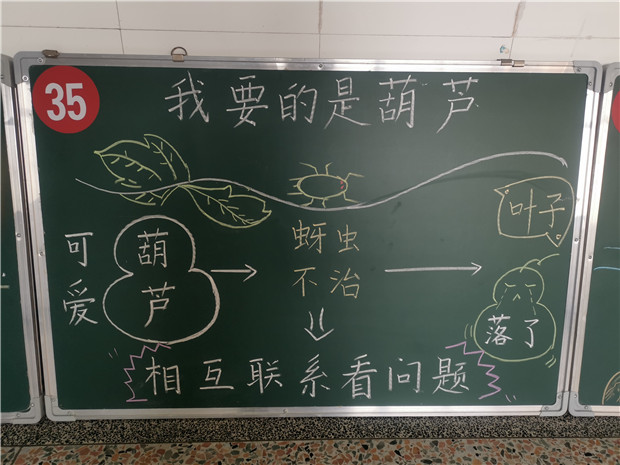 35
我要的是葫芦
叶子
可爱
葫芦
蚜虫
不治
落了
相互联系看问题